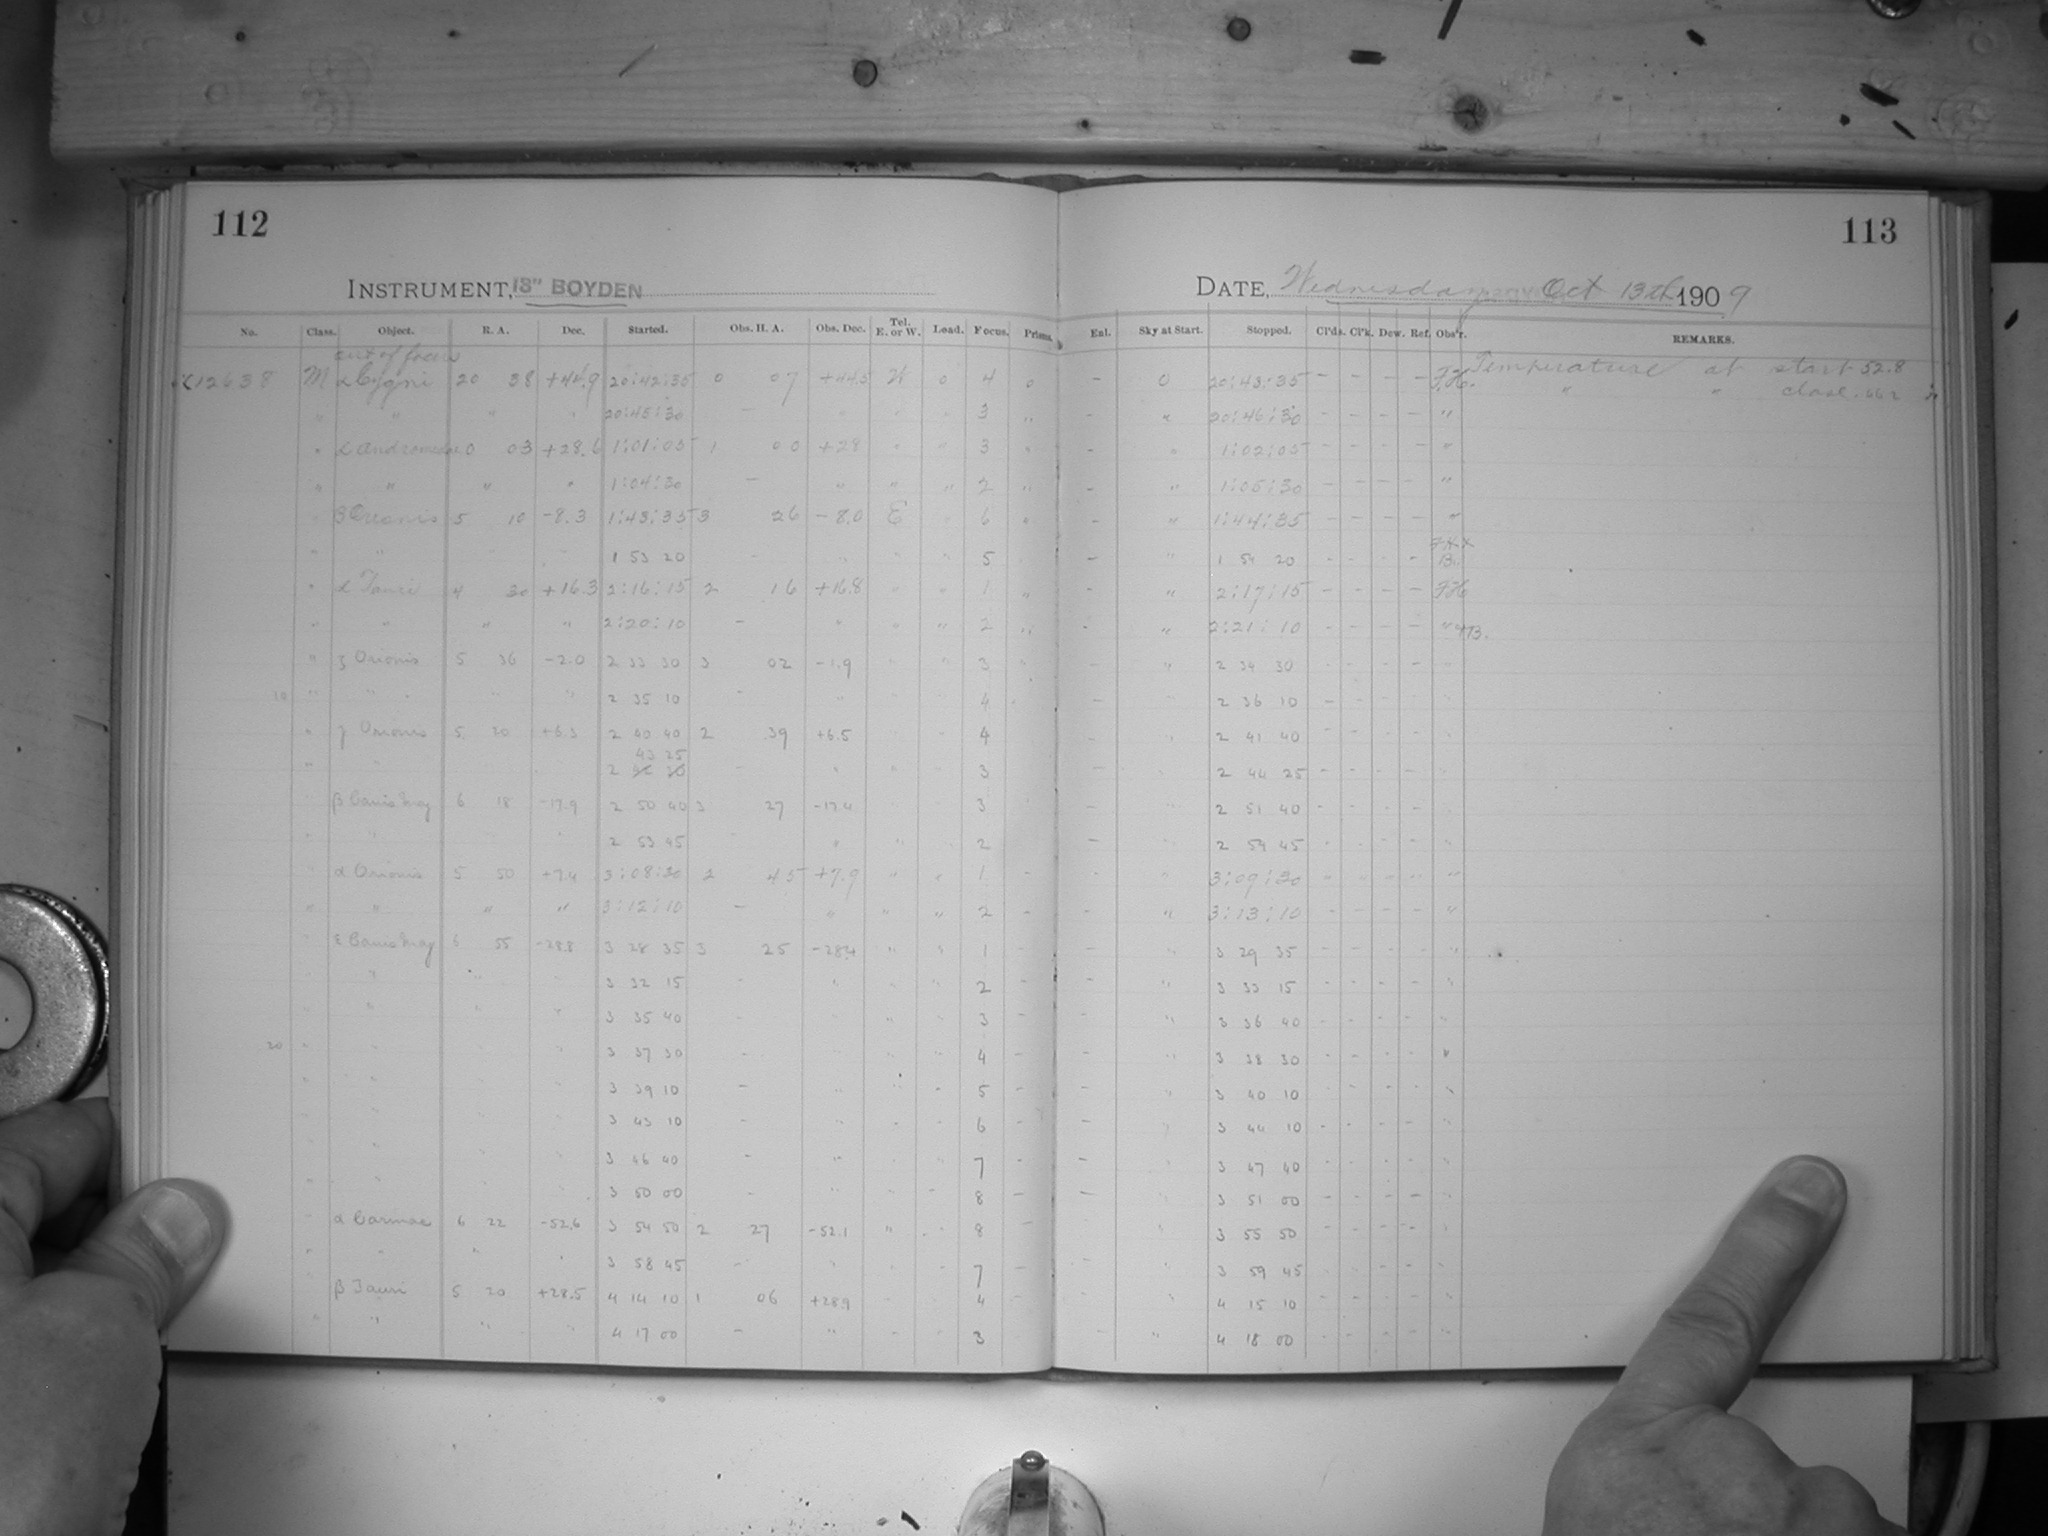 112
113
INSTRUMENT, 13" BOYDEN
DATE, Wednesday Oct 13th 1909
No. Class. Object. R. A. Dec. Started. Obs. H. A. Obs. Dec. Tel. E. or W. Load. Focus. Prisms. Enl. Sky at Start. Stopped. Cl'ds. Cl'k. Dew. Ref. Obs'r. REMARKS.
out of focus
X12638 M α Cygni 20 38 +44.9 20:42:35 0 07 +44.5 W 0 4 0 - 0 20:43:35 - - - - F.H. Temperature at start 52.8
" " " " 20:45:30 - " " " 3 " " 20:46:30 - - - - " " " close
" α Andromedae 0 03 +28.6 1:01:05 1 00 +28 " " 3 " - " 1:02:05 - - - - "
" " " " 1:04:30 - " " " 2 " - " 1:05:30 - - - - "
β Orionis 5 10 -8.3 1:43:35 3 26 -8.0 E 6 " - " 1:44:35 - - - - "
" " 1 53 20 - " " 5 - " 1 54 20 - - - -
" α Tauri 4 30 +16.3 2:16:15 2 16 +16.8 " " 1 " - " 2:17:15 - - - - FH
" " " " 2:20:10 - " " " 2 " - " 2:21:10 - - - - "
" ζ Orionis 5 36 -2.0 2 33 30 3 02 -1.9 " " 3 " - " 2 34 30 - - - - "
10 " " " " 2 35 10 - " 4 2 36 10 - - - -
" γ Orionis 5 20 +6.3 2 40 40 2 39 +6.5 4 2 41 40 - - - -
43 25
" " 2 - " " " 3 - 2 44 25 - - - -
β Canis Maj 6 18 -17.9 2 50 40 3 27 -17.4 3 - 2 51 40 - - - -
" 2 53 45 " " 2 - 2 54 45 - - - -
α Orionis 5 50 +7.4 3:08:30 2 45 +7.9 " " 1 - - " 3:09:30 " " " " "
" " " " 3:12:10 - " " " 2 - - " 3:13:10 - - - - "
ε Canis Maj 6 55 -28.8 3 28 35 3 25 -28.4 " " 1 - - " 3 29 35 - - - - "
" " " 3 32 15 - " " " 2 - - " 3 33 15 - - - - "
" " " 3 35 40 - " " 3 - - " 3 36 40 - - - - "
20 " " " 3 37 30 - " " 4 - - " 3 38 30 - - - - "
" " 3 39 10 - " " 5 - - " 3 40 10 - - - - "
" " 3 43 10 - " " 6 - - 3 44 10 - - - - "
" " 3 46 40 - " " 7 - - 3 47 40 - - - - "
" " 3 50 00 - " " 8 - - 3 51 00 - - - - "
α Carinae 6 22 -52.6 3 54 50 2 27 -52.1 " " 8 - 3 55 50 - - - -
" " " " 3 58 45 - " " 7 - - 3 59 45 - - - - "
β Tauri 5 20 +28.5 4 14 10 1 06 +28.9 4 - " 4 15 10 - - - - "
" " " " 4 17 00 - " 3 - " 4 18 00 - - - - "